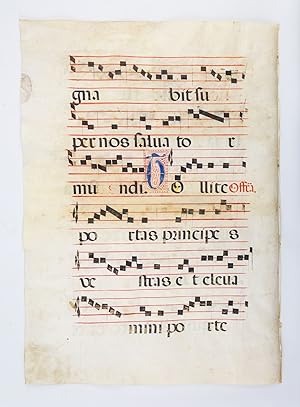 gna bit su
per nos salua to r
mu ndi. T ollite Offa.
po rtas principe s
ve stras e t eleva
mini po rte